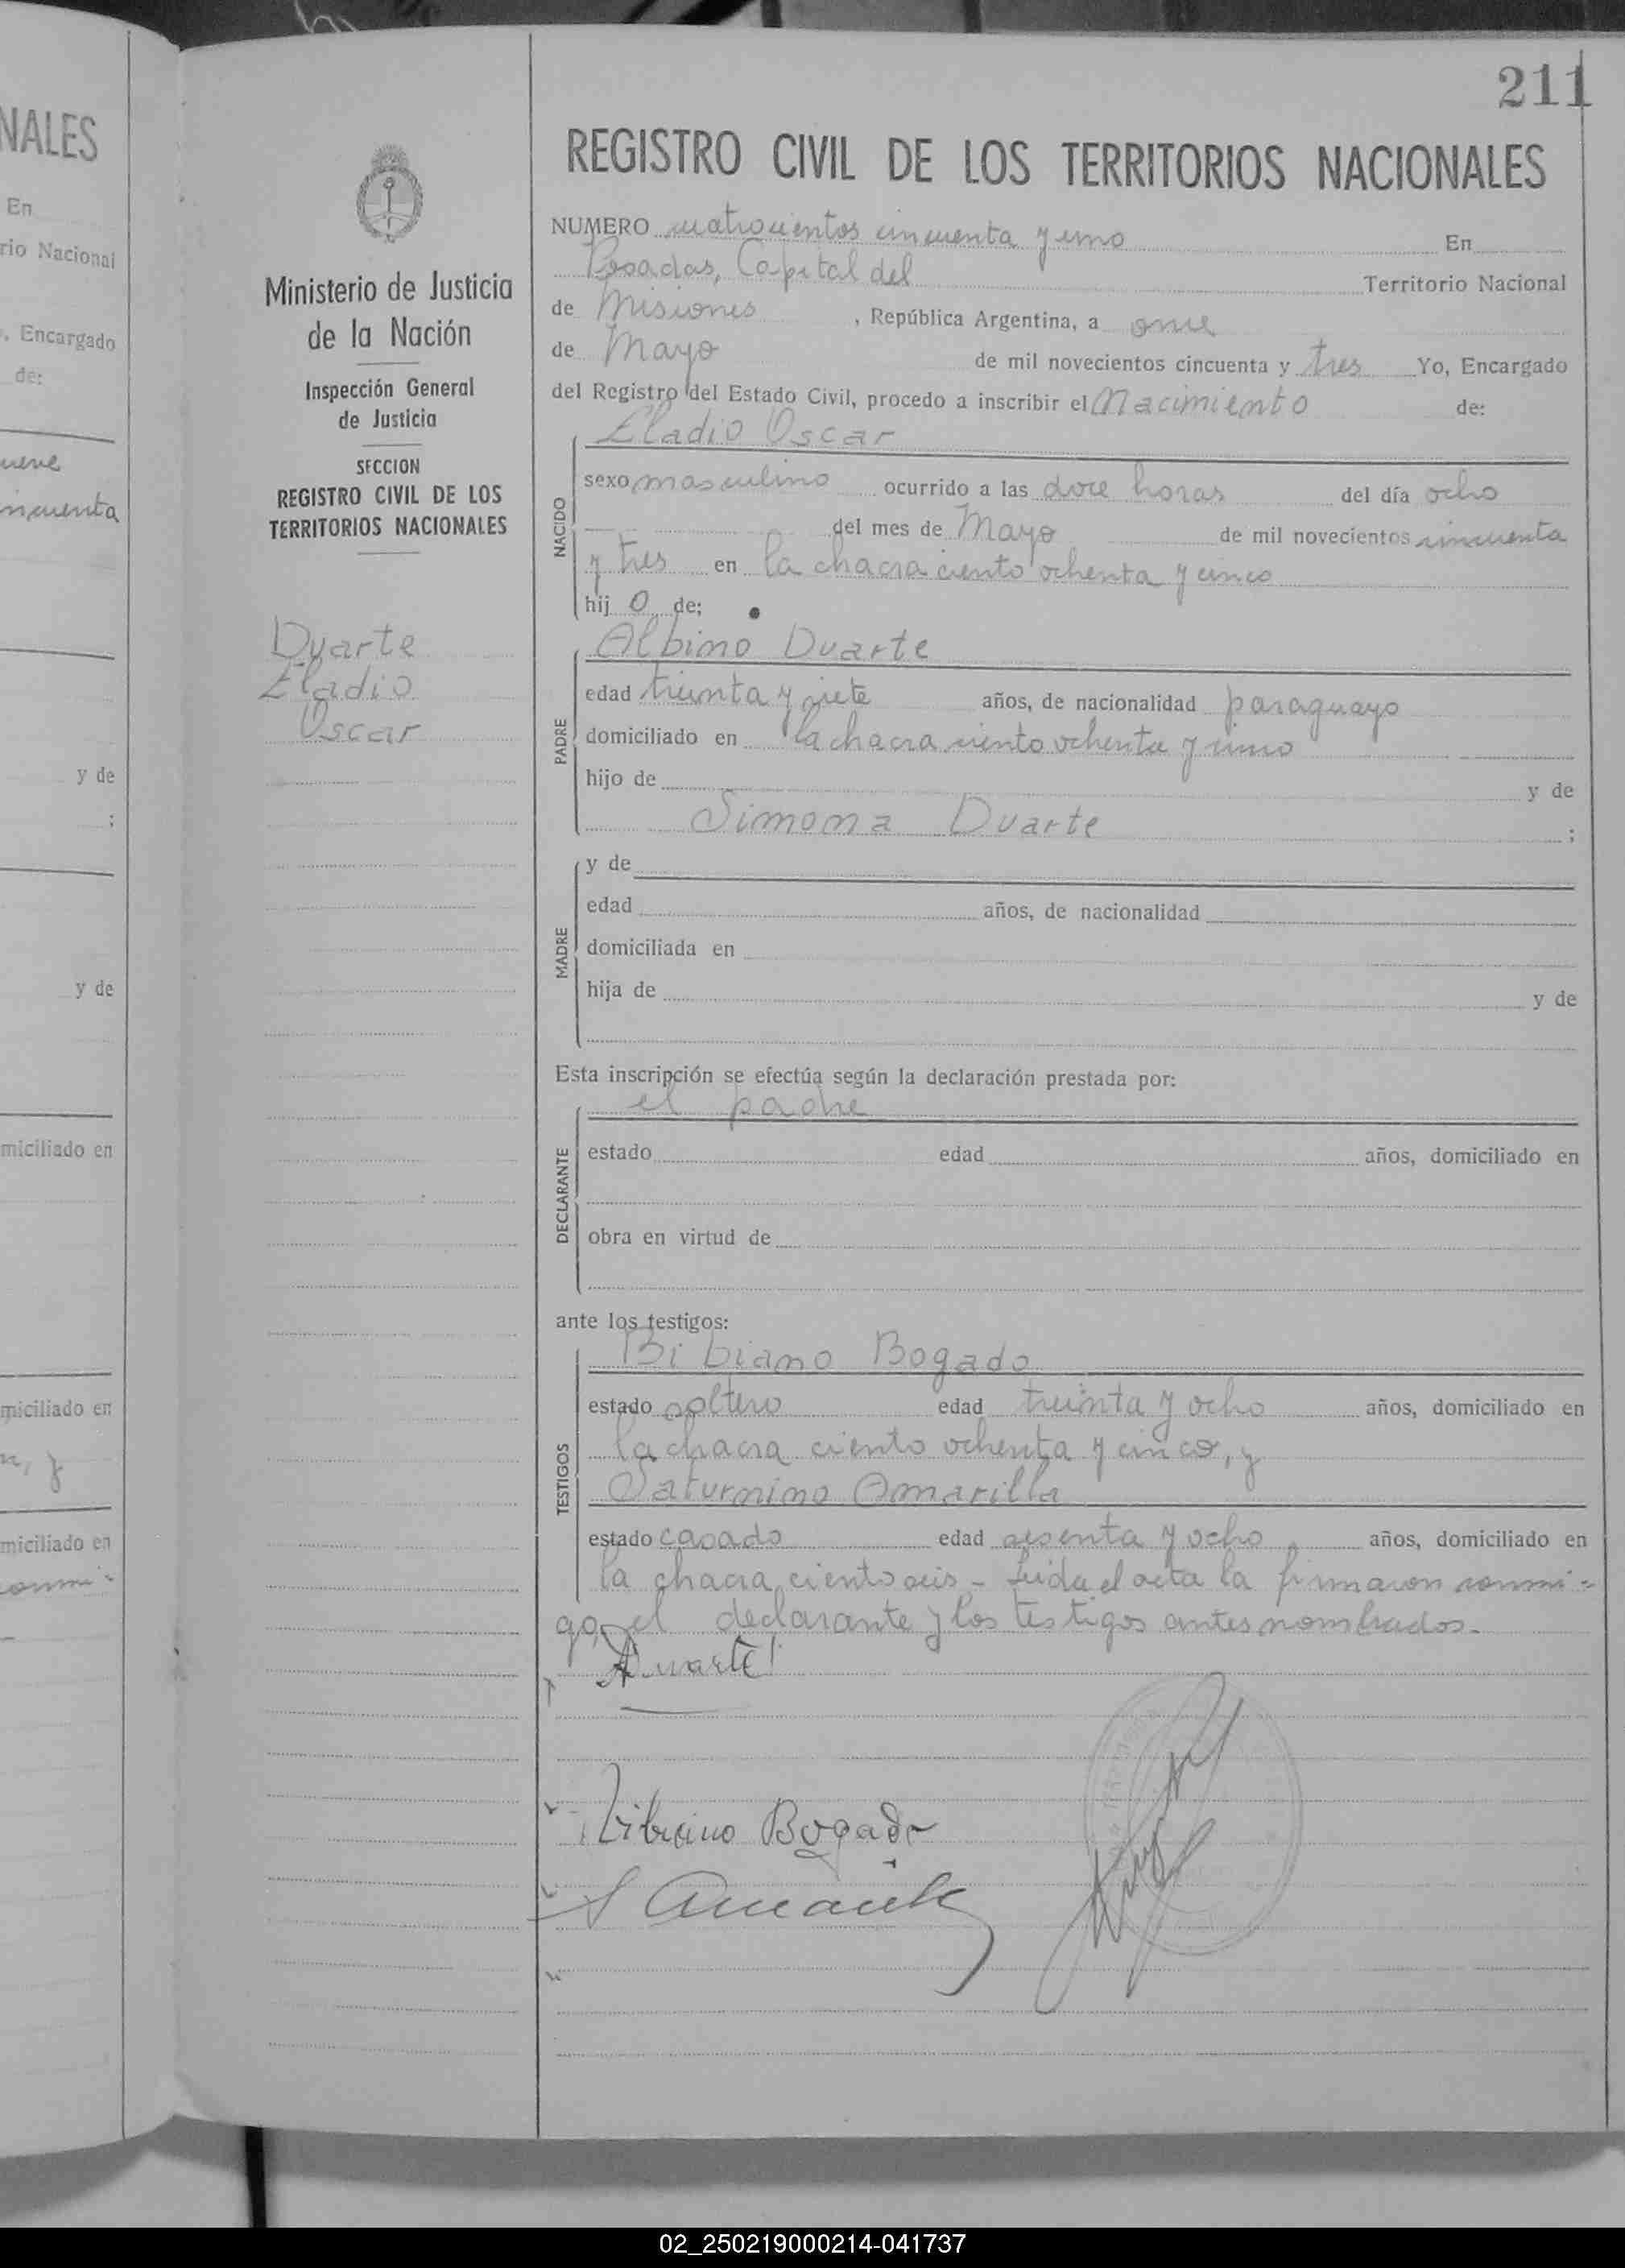 211
NALES
En
rio Nacional
, Encargado
de:
nueve
incuenta
y de
;
y de
miciliado en
miciliado en
miciliado en
conmi-
Ministerio de Justicia
de la Nación
Inspección General
de Justicia
SECCION
REGISTRO CIVIL DE LOS
TERRITORIOS NACIONALES
Duarte
Eladio
Oscar
REGISTRO CIVIL DE LOS TERRITORIOS NACIONALES
NUMERO cuatrocientos cincuenta y uno En
Posadas, Capital del Territorio Nacional
de Misiones , República Argentina, a once
de Mayo de mil novecientos cincuenta y tres Yo, Encargado
del Registro del Estado Civil, procedo a inscribir el Nacimiento de:
NACIDO
Eladio Oscar
sexo masculino ocurrido a las doce horas del día ocho
del mes de Mayo de mil novecientos cincuenta
y tres en la chacra ciento ochenta y cinco
hij o de;
PADRE
Albino Duarte
edad treinta y siete años, de nacionalidad paraguayo
domiciliado en la chacra ciento ochenta y cinco
hijo de y de
Simona Duarte ;
MADRE
y de
edad años, de nacionalidad
domiciliada en
hija de y de
Esta inscripción se efectúa según la declaración prestada por:
DECLARANTE
el padre
estado edad años, domiciliado en
obra en virtud de
ante los testigos:
TESTIGOS
Bibiano Bogado
estado soltero edad treinta y ocho años, domiciliado en
la chacra ciento ochenta y cinco, y
Saturnino Amarilla
estado casado edad sesenta y ocho años, domiciliado en
la chacra ciento seis - Leida el acta la firmaron conmi-
go, el declarante y los testigos antes nombrados.-
A Duarte
Bibiano Bogado
S Amarilla
02_250219000214-041737